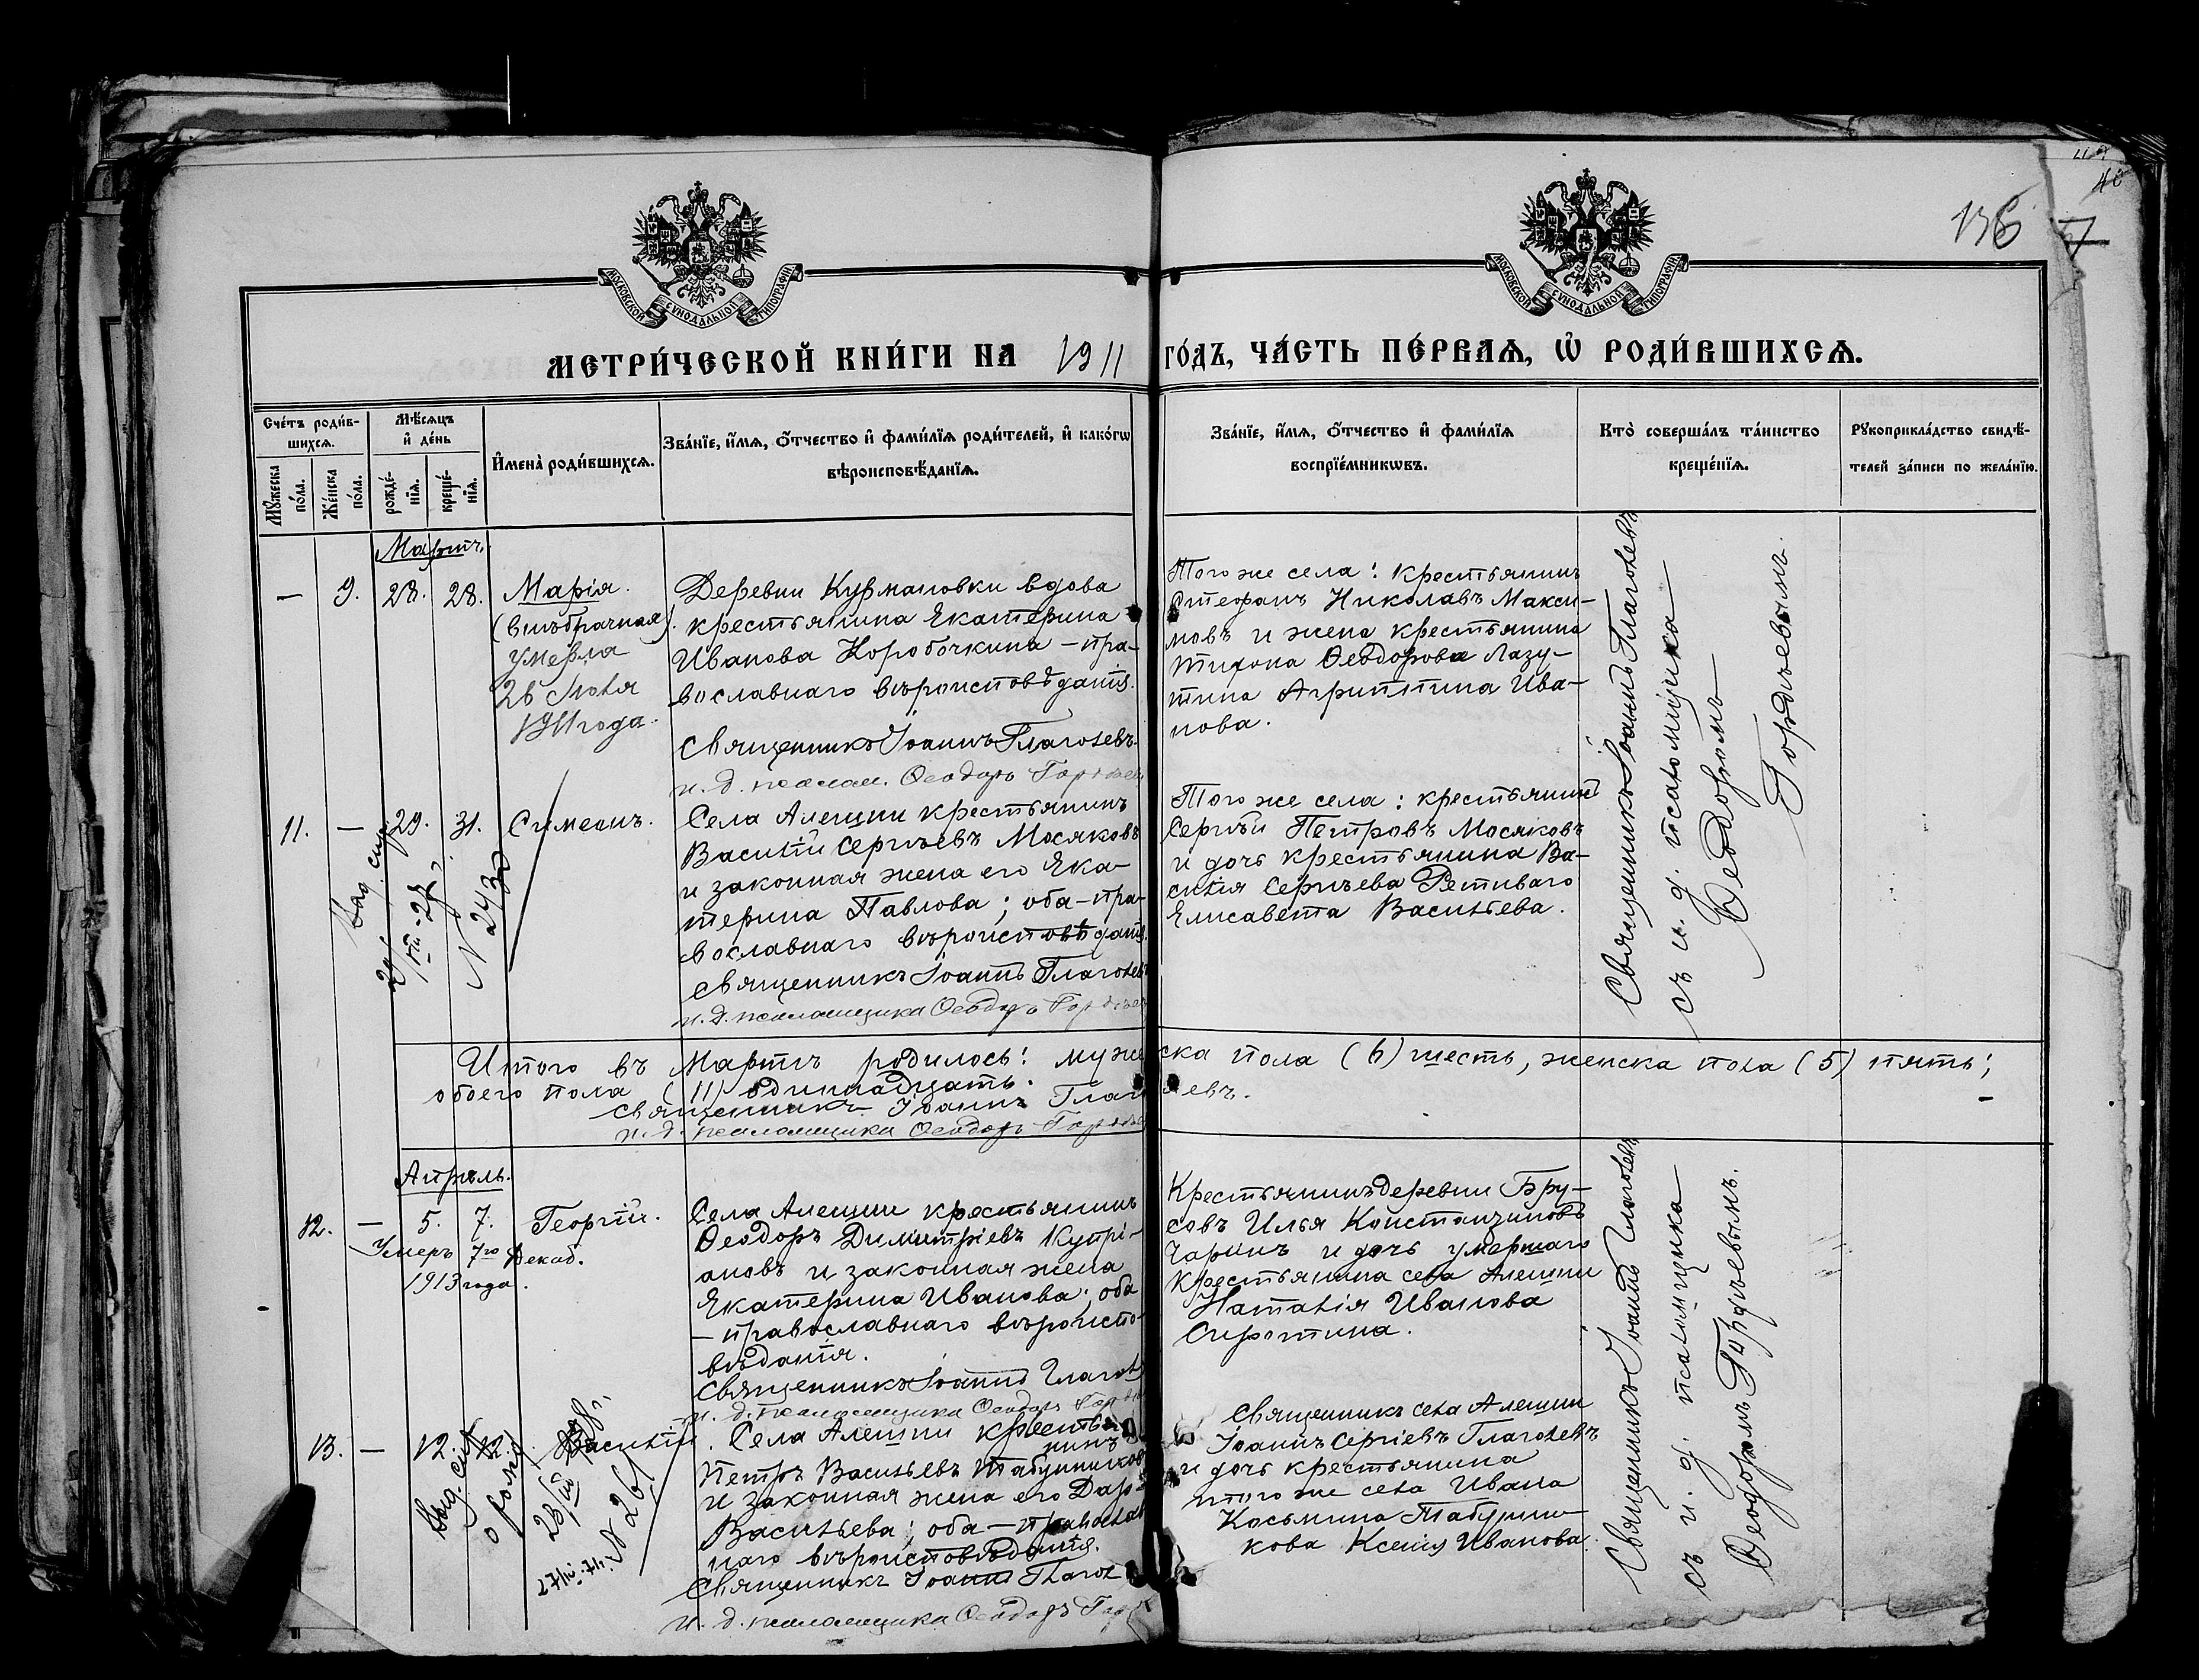 136
МОСКОВСКОЙ СѴНОДАЛЬНОЙ ТИПОГРАФІИ
МОСКОВСКОЙ СѴНОДАЛЬНОЙ ТИПОГРАФІИ
МЕТРИ́ЧЕСКОЙ КНИ́ГИ НА 1911 ГО́ДЪ, ЧА́СТЬ ПЕ́РВАѦ, Ѡ҆ РОДИ́ВШИХСѦ.
Сче́тъ роди́в-
шихсѧ.
Мꙋ́жеска по́ла.
Же́нска по́ла.
Мѣ́сѧцъ
и҆ де́нь
рожде́-
нїѧ.
креще́-
нїѧ.
И҆мена̀ роди́вшихсѧ.
Зва́нїе, и҆́мѧ, ѻ҆́тчество и҆ фами́лїѧ роди́телей, и҆ како́гѡ
вѣроисповѣ́данїѧ.
Зва́нїе, и҆́мѧ, ѻ҆́тчество и҆ фами́лїѧ
воспрїе́мникѡвъ.
Кто̀ соверша́лъ та́инство
креще́нїѧ.
Рꙋкоприкла́дство свидѣ́-
телей за́писи по жела́нїю.
Мартъ.
— 9. 28. 28. Марія.
(внѣбрачная).
умерла
26 Іюля
1911 года.
Деревни Курмановки вдова
крестьянина Екатерина
Иванова Коробочкина – пра-
вославнаго вѣроисповѣданія.
Священникъ Іоаннъ Глаголевъ.
и. д. псалом. Ѳеодоръ Гордѣев
Того же села: крестьянинъ
Стефанъ Николаевъ Макси-
мовъ и жена крестьянина
Тихона Ѳеодорова Лазу-
тина Агриппина Ива-
нова.
Священникъ Іоаннъ Глаголевъ
съ и. д. псаломщика
Ѳеодоромъ
Гордѣевымъ.
11. — 29. 31. Симеонъ.
N 243
Села Алешни крестьянинъ
Василій Сергѣевъ Мосяковъ
и законная жена его Ека-
терина Павлова; оба – пра-
вославнаго вѣроисповѣданія.
Священникъ Іоаннъ Глаголев
и. д. псаломщика Ѳеодоръ Гордѣев
Того же села: крестьянинъ
Сергѣй Петровъ Мосяковъ
и дочь крестьянина Ва-
силія Сергѣева Ретиваго
Елисавета Васильева.
Итого въ Мартѣ родилось: мужеска пола (6) шесть, женска пола (5) пять;
обоего пола (11) одиннадцать.
Священникъ Іоаннъ Глаголевъ.
и. д. псаломщика Ѳеодоръ Гордѣе
Апрѣль.
12. — 5. 7. Георгій.
Умеръ 7го Декаб.
1913 года.
Села Алешни крестьянинъ
Ѳеодоръ Димитріевъ Купрі-
ановъ и законная жена
Екатерина Иванова; оба
– православнаго вѣроиспо-
вѣданія.
Священникъ Іоаннъ Глагол
и. д. псаломщика Ѳеодоръ Гордѣ
Крестьянинъ деревни Бру-
совъ Илья Константиновъ
и дочь умершаго
крестьянина села Алешни
Наталія Иванова
Сиротина.
Священникъ Іоаннъ Глаголевъ
съ и. д. псаломщика
Ѳеодоромъ Гордѣевымъ.
13. — 12. 12. Василій.
N 261
Села Алешни крестья
нинъ
Петръ Васильевъ Табунщиков
и законная жена его Дарь
Васильева; оба – православ
наго вѣроисповѣданія.
Священникъ Іоаннъ Глагол
и. д. псаломщика Ѳеодоръ Гор
Священникъ села Алешни
Іоаннъ Сергіевъ Глаголевъ
и дочь крестьянина
того же села Ивана
Косьмина Табунщи-
кова Ксенія Иванова.